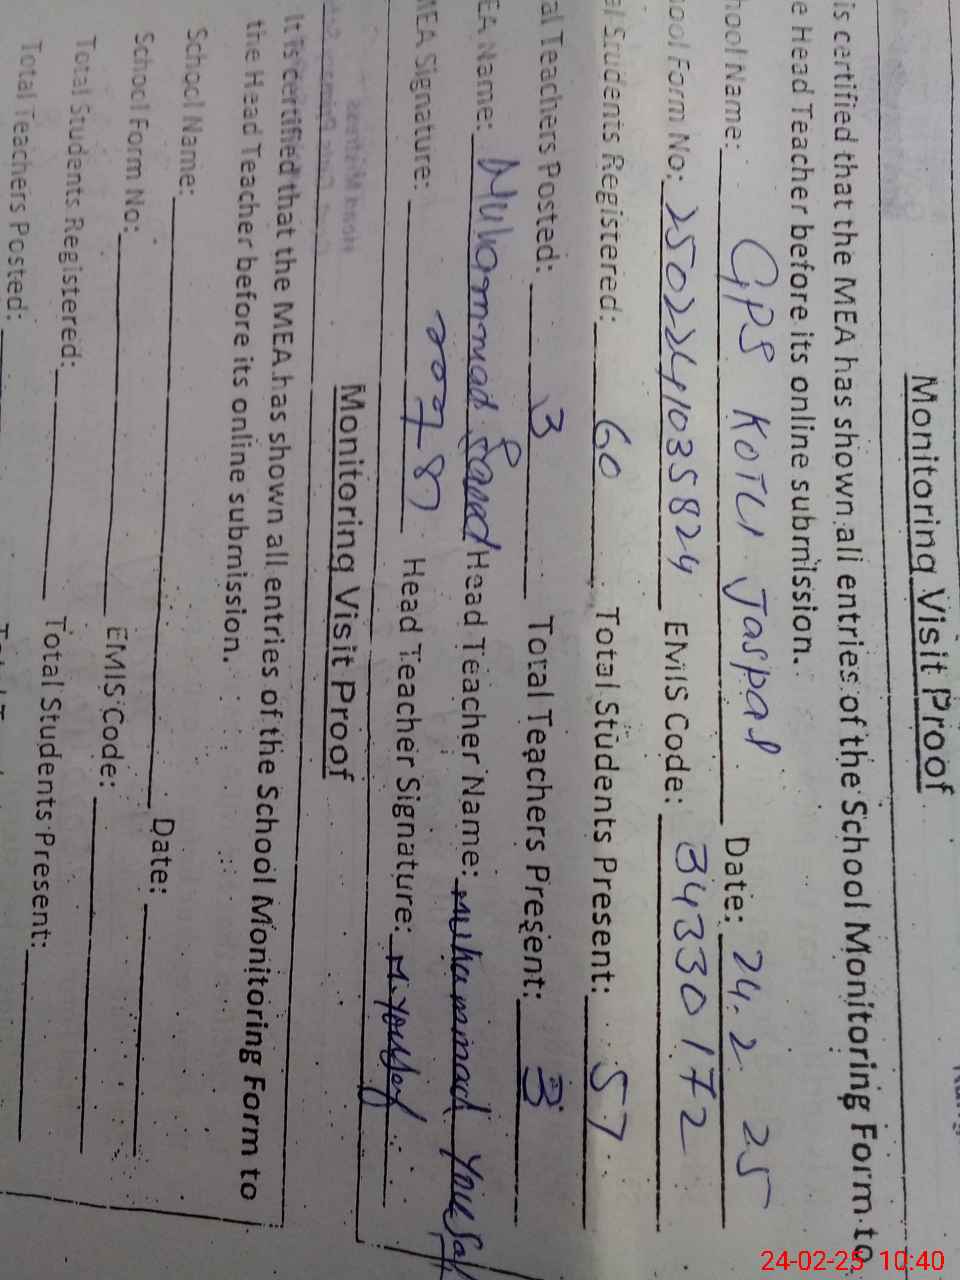 Monitoring Visit Proof
is certified that the MEA has shown all entries of the School Monitoring Form to
e Head Teacher before its online submission.
hool Name: GPS KOTLI Jaspal Date: 24.2 25
hool Form No: 2502241035824 EMIS Code: 34330172
al Students Registered: 60 Total Students Present: 57
al Teachers Posted: 3 Total Teachers Present: 3
EA Name: Muhammad Head Teacher Name: Muhammad Yousaf
MEA Signature: Head Teacher Signature: M. Yousaf
Monitoring Visit Proof
It is certified that the MEA has shown all entries of the School Monitoring Form to
the Head Teacher before its online submission.
School Name: Date:
School Form No: EMIS Code:
Total Students Registered: Total Students Present:
Total Teachers Posted:
24-02-25 10:40